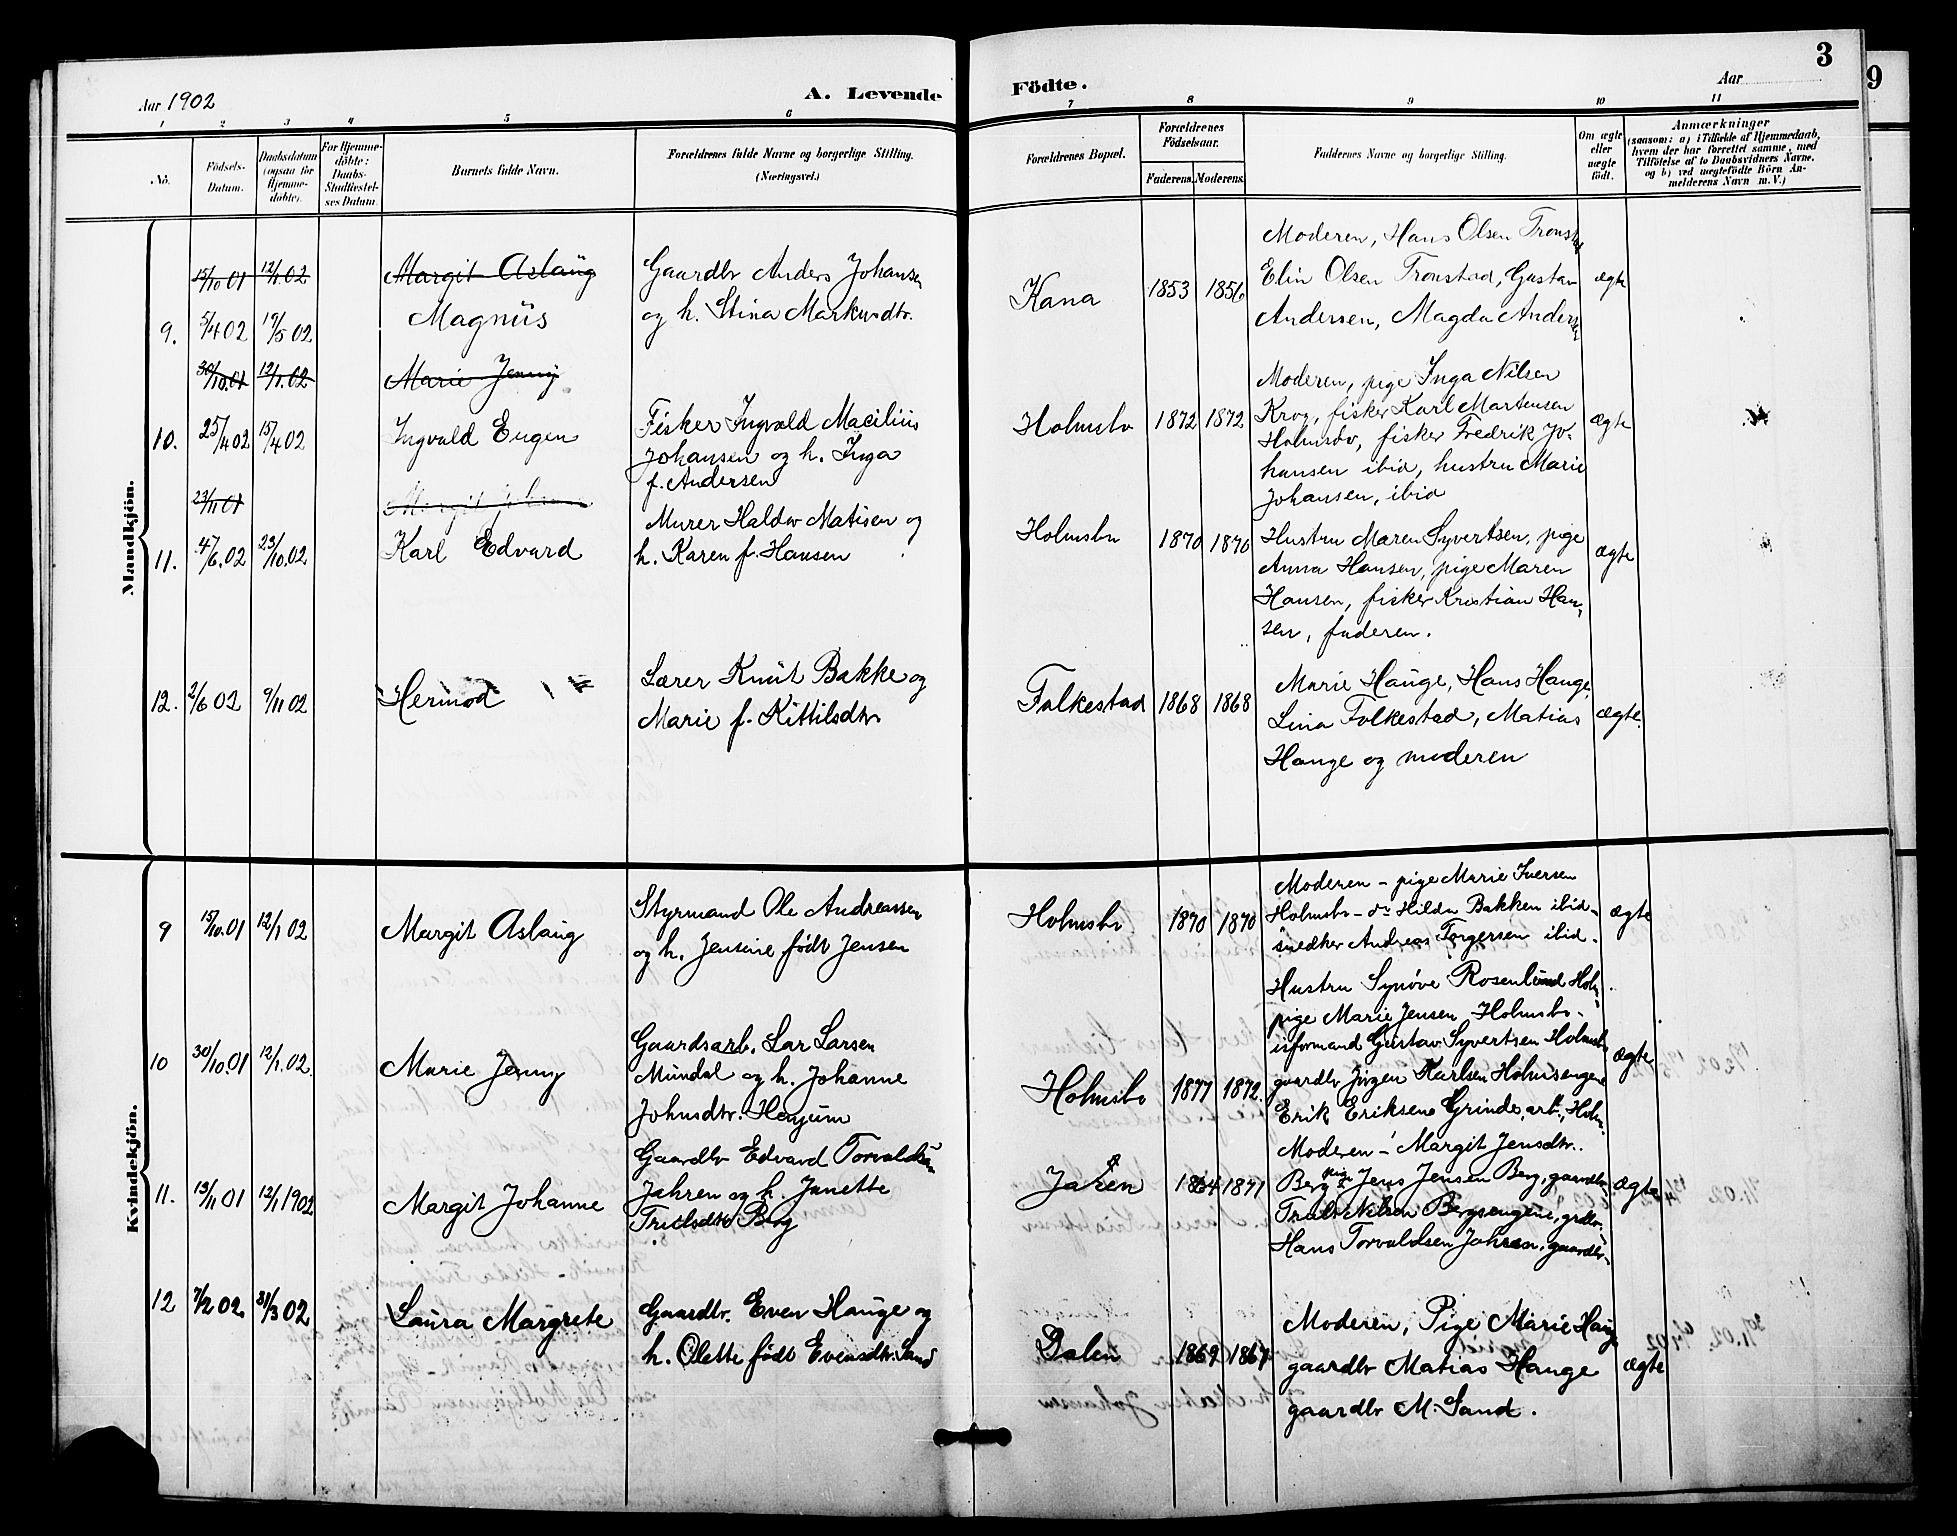 3
9
Aar 1902
A. Levende
Födte.
Aar
1 2 3 4 5 6 7 8 9 10 11
No.
Födsels-
Datum.
Daabsdatum
(ogsaa for
Hjemme-
döbte).
For Hjemme-
döbte:
Daabs-
Stadfæstel-
ses Datum.
Barnets fulde Navn.
Forældrenes fulde Navne og borgerlige Stilling.
(Næringsvei.)
Forældrenes Bopæl.
Forældrenes
Födselsaar.
Faderens. Moderens.
Faddernes Navne og borgerlige Stilling.
Om ægte
eller
uægte
födt.
Anmærkninger
(saasom: a) i Tilfælde af Hjemmedaab,
hvem der har forrettet samme, med
Tilföielse af to Daabsvidners Navne.
og b) ved uægtefödte Börn An-
melderens Navn m. V.)
Mandkjön.
15/10 01 12/1.02 Margit Aslaug
9. 5/4 02 19/5 02 Magnus
Gaardbr Anders Johansen
og h. Stina Markusdtr.
Kana 1853 1856
Moderen, Hans Olsen Tronstad
Elin Olsen Tronstad, Gustav
Andersen, Magda Andersen
ægte
30/10.01 12/1.02 Marie Jenny
10. 25/4 02 15/4 02 Ingvald Eugen
Fisker Ingvald Macilius
Johansen og h. Inga
f. Andersen
Holmsbo 1872 1872
Moderen, pige Inga Nilsen
Krog, fisker Karl Martensen
Holmsbo, fisker Fredrik Jo-
hansen ibid, hustru Marie
Johansen, ibid
ægte
23/11 01 Margit Johanne
11. 4/6.02 23/10.02 Karl Edvard
Murer Haldor Matisen og
h. Karen f. Hansen
Holmsbo 1870 1870
Hustru Maren Syvertsen, pige
Anna Hansen, pige Maren
Hansen, fisker Kristian Han-
sen, faderen.
ægte
12. 2/6 02 9/11 02 Hermod
Lærer Knut Bakke og
Marie f. Kittilsdtr
Folkestad 1868 1868
Marie Hauge, Hans Hauge,
Lina Folkestad, Matias
Hauge og moderen
ægte.
Kvindekjön.
9 15/10.01 12/1 02 Margit Aslaug
Styrmand Ole Andreassen
og h. Jensine født Jensen
Holmsbo 1870 1870
Moderen - pige Marie Iversen
Holmsbo - do Hilda Bakken ibid -
snedker Andreas Torgersen ibid.
ægte
10 30/10.01 12/1.02. Marie Jenny
Gaardsarb. Lar Larsen
Mundal og h. Johanne
Johnsdtr. Henjum
Holmsbo 1877 1872.
Hustru Synøve Rosenlund Holm-
pige Marie Jensen Holmsbo -
isformand Gustav Syvertsen Holmsbo
gaardbr Jørgen Karlsen Holmsengene
Erik Eriksen Grinde, arb., Holm.
ægte
11. 13/11 01 12/1 1902 Margit Johanne
Gaardbr Edvard Torvaldsen
Jahren og h. Janette
Trulsdtr Berg
Jaren 1864 1871
Moderen - Margit Jensdtr.
Berg pige, Jens Jensen Berg, gaardbr,
Truls Nilsen Bergsengene, grdbr,
Hans Torvaldsen Jahren, gaardbr-
ægte
12 7/2 02. 31/3 02 Laura Margrete
Gaardbr. Even Hauge og
h. Olette født Evensdtr. Sand
Dalen 1869 1867
Moderen, Pige Marie Hauge
gaardbr Matias Hauge
gaardbr M. Sand.
ægte